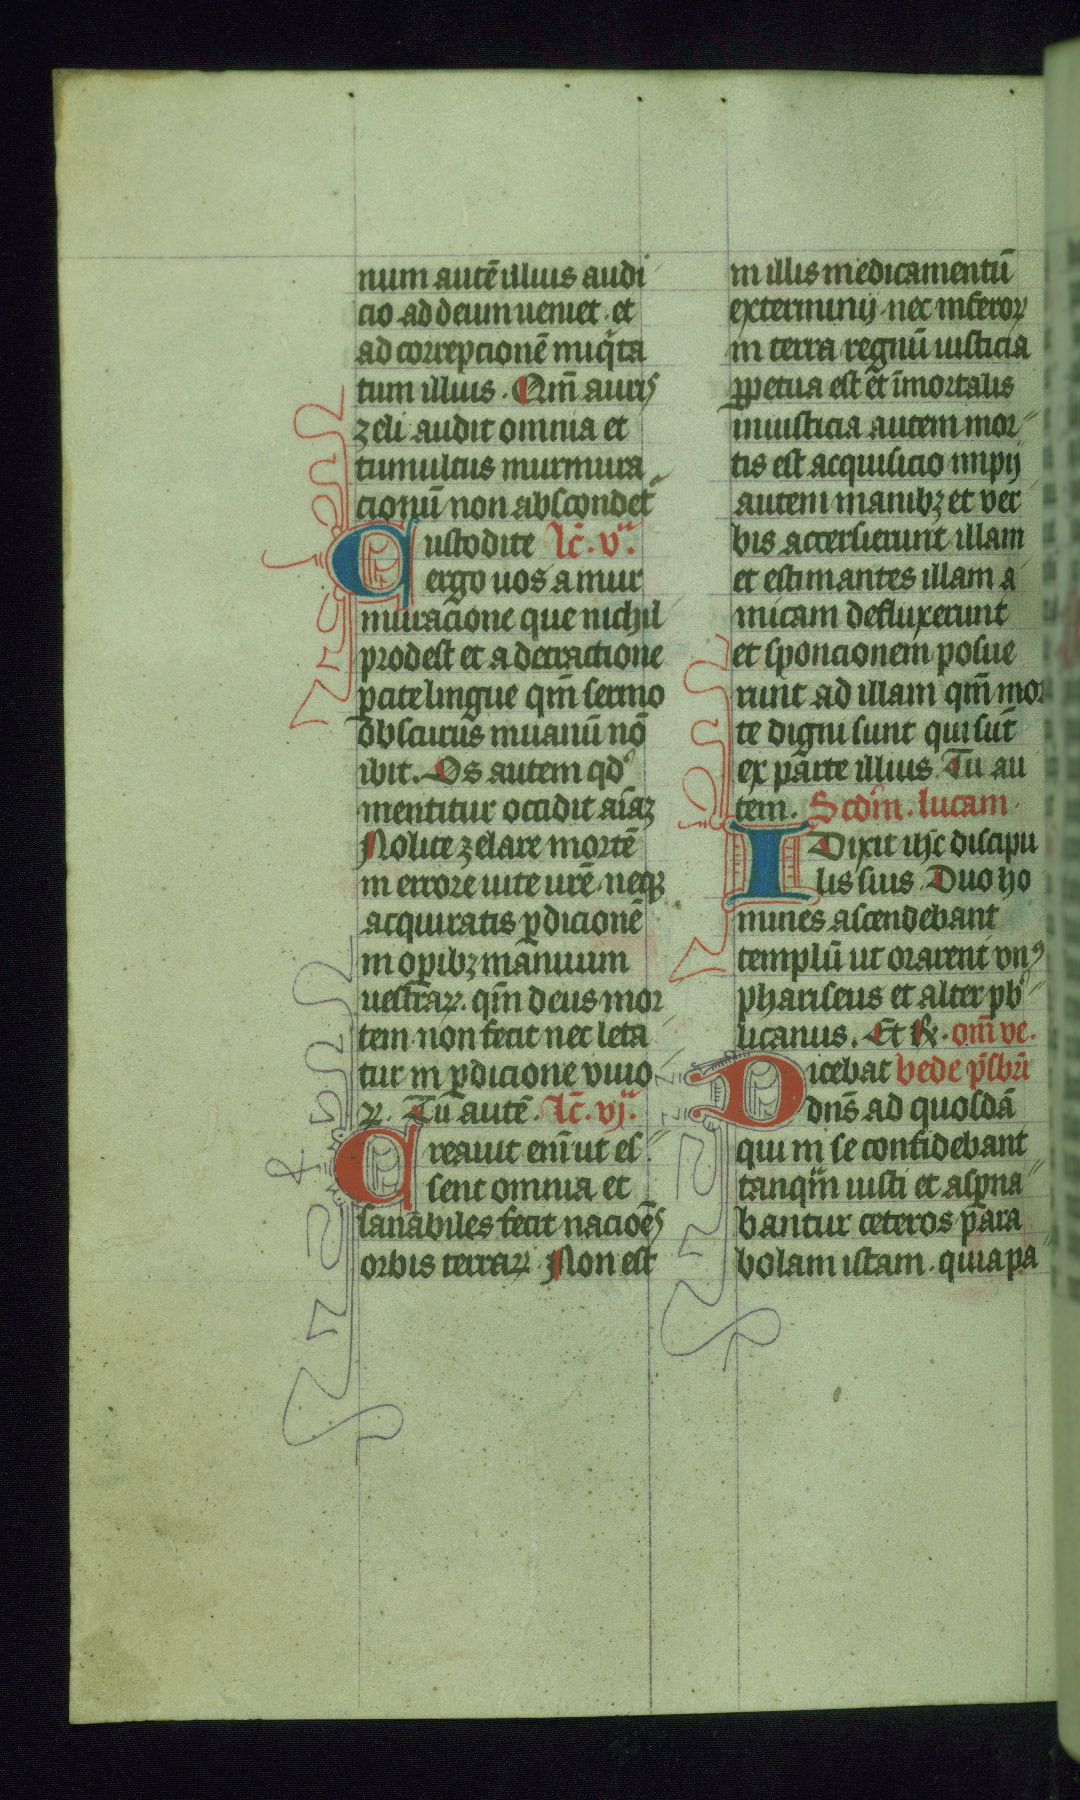 num autē illius audi
cio ad deum ueniet. et
ad correpcionē iniq̄ta
tum illius. Qm̄ auris
zeli audit omnia et
tumultus murmura
cionū non abscondet᷑
Custodite lc̄. v.
ergo uos a mur
muracione que nichil
prodest et a detractione
ꝑcite lingue qm̄ sermo
obscurus inuanū nō
ibit. Os autem qd᷒
mentitur occidit aīaꝫ
Nolite zelare mortē
in errore uite ur̄e neqꝫ
acquiratis ꝑdicionē
in oꝑibꝫ manuum
uestraꝝ. qm̄ deus mor
tem non fecit nec leta
tur in ꝑdicione viuo
ꝝ. Tu autē. lc̄. vj.
Creauit enī ut es
sent omnia et
sanabiles fecit nacioēs
orbis terraꝝ Non est
in illis medicamentū
exterminij nec inferoꝝ
in terra regnū iusticia
ꝑpetua est et īmortalis
iniusticia autem mor
tis est acquisicio impij
autem manibꝫ et ver
bis accersierunt illam
et estimantes illam a
micam defluxerunt
et sponcionem posue
runt ad illam qm̄ mor
te digni sunt qui sūt
ex parte illius Tu au
tem. Scdm̄. lucam.
I Dixit ihc discipu
lis suis Duo ho
mines ascendebant
templū ut orarent vnꝰ
phariseus et alter pb
licanus. Et R. om̄ ve.
Dicebat bede pr̄sbr̄i
dn̄s ad quosdā
qui in se confidebant
tanqm̄ iusti et asꝑna
bantur ceteros ꝑara
bolam istam. quia pa